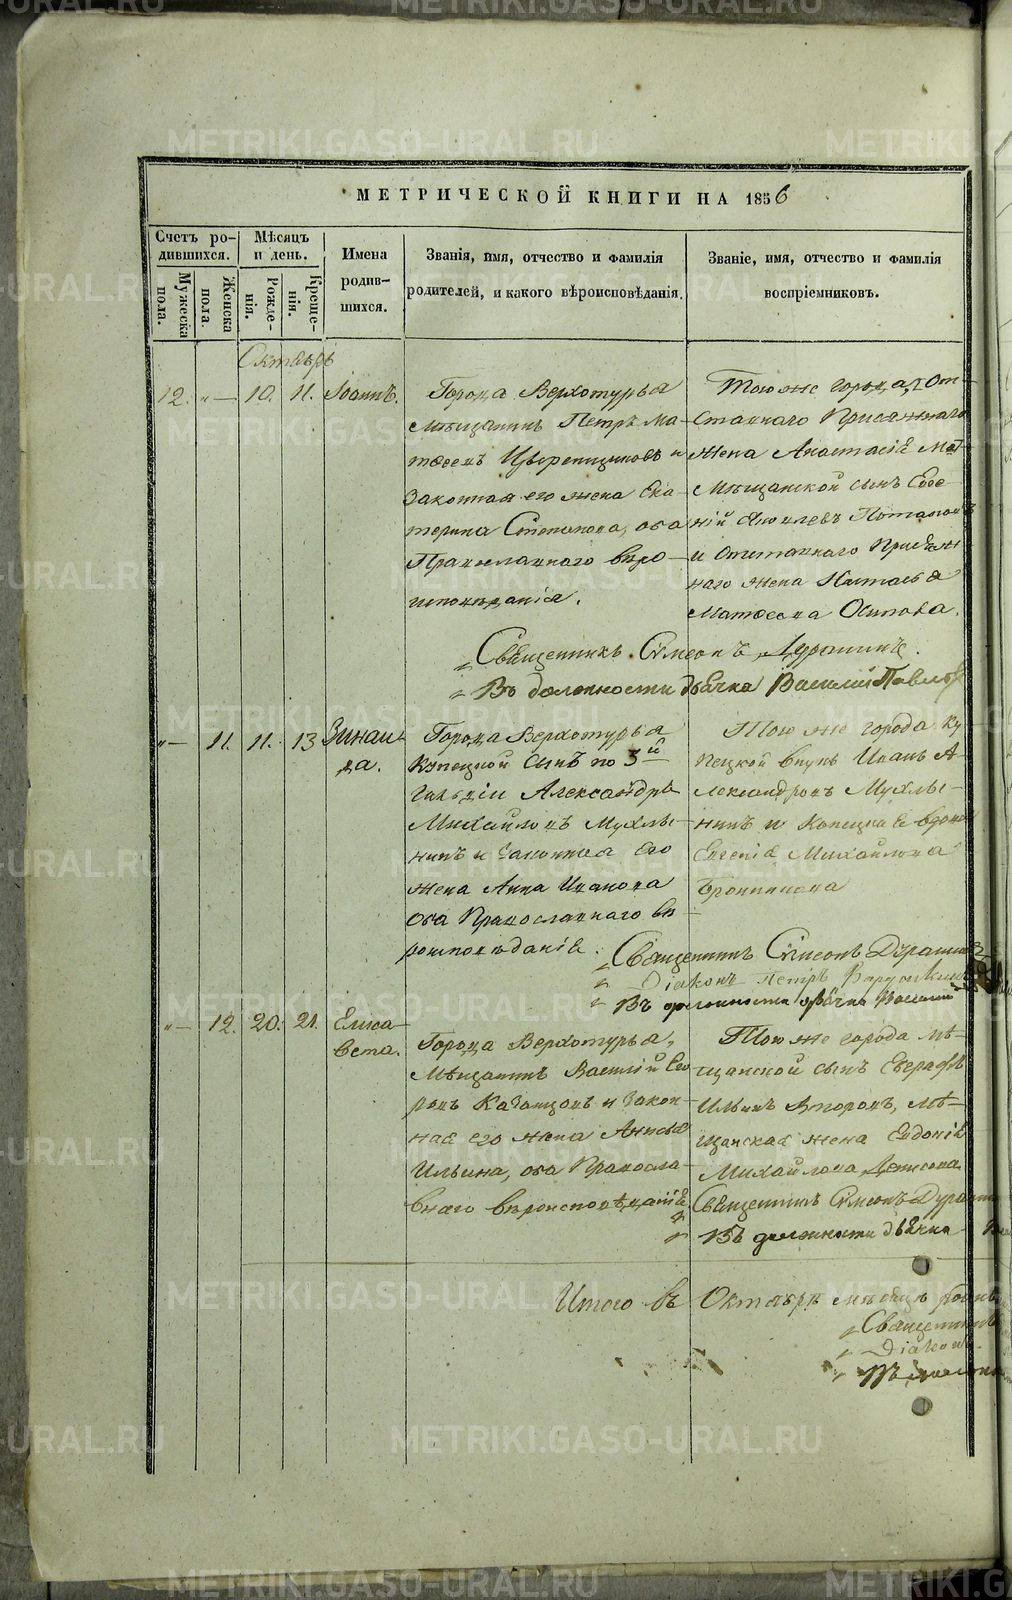 МЕТРИЧЕСКОЙ КНИГИ НА 1856
Счетъ ро-
дившихся.
Мѣсяцъ
и день.
Имена
родив-
шихся.
Званія, имя, отчество и фамилія
родителей, и какого вѣроисповѣданія.
Званіе, имя, отчество и фамилія
воспріемниковъ.
Мужеска
пола.
Женска
пола.
Рожде-
нія.
Креще-
нія.
Октябрь
12. „— 10. 11. Іоаннъ.
Города Верхотурья
мѣщанинъ Петръ Ма-
тѳеевъ и
законная его жена Ека-
терина Степанова, оба
Православнаго вѣро-
исповѣданія.
Того же города, От-
ставнаго
жена Анастасія
Мѣщанской сынъ Евге-
ній Яковлевъ Потаповъ
и Отставнаго
наго жена Наталья
Матѳеева Осипова.
Священникъ Сѵмеонъ Дурашинъ.
Въ должности дьячка Василій
„— 11. 11. 13 Зинаи-
да.
Города Верхотурья
Купецкой сынъ по 3й
гильдіи Александръ
Михайловъ Мухлы-
нинъ и законная его
жена Анна Иванова
оба Православнаго вѣ-
роисповѣданія.
Того же города Ку-
пецкой внукъ Иванъ А-
лександровъ Мухлы-
нинъ и Купецкая вдова
Евгенія Михайлова
Священникъ Сѵмеонъ
Діаконъ Петръ
Въ должности дьячка Василій
„— 12. 20. 21. Елиса-
вета.
Города Верхотурья,
Мѣщанинъ Василій Его-
ровъ Казанцовъ и закон-
ная его жена Анисья
Ильина, оба Правосла-
внаго вѣроисповѣданія
Того же города мѣ-
щанской сынъ Евграфъ
Ильинъ Второвъ, Мѣ-
щанская жена Евдокія
Михайлова Денисова.
Священникъ Сѵмеонъ
Въ должности дьячка
Итого въ Октябрѣ мѣсяцѣ
Священникъ
Діаконъ
Въ
METRIKI.GASO-URAL.RU